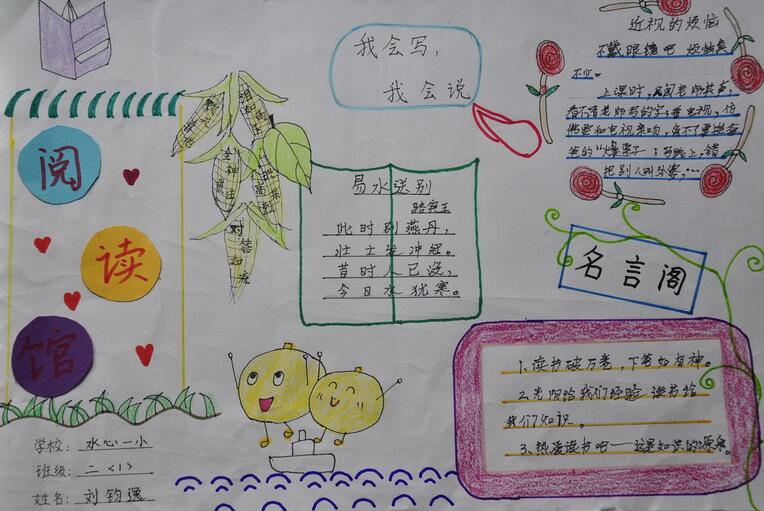 阅
读
馆
学校: 水心一小
班级: 二〈1〉
姓名: 刘钧逸
对答如流
我会写，
我会说
易水送别
骆宾王
此时别燕丹，
壮士发冲冠。
昔时人已没，
今日水犹寒。
近视的烦恼
不戴眼镜吧 烦恼真
不少。
上课时，
看不清老师写的字；看电视，仿
佛要和电视亲吻，免不了要挨爸
爸的“爆栗子”；马路上，错
把别人叫朱寒，…
名言阁
1、读书破万卷，下笔如有神。
2、光阴给我们经验 读书给
我们知识。
3、热爱读书吧——这是知识的源泉。